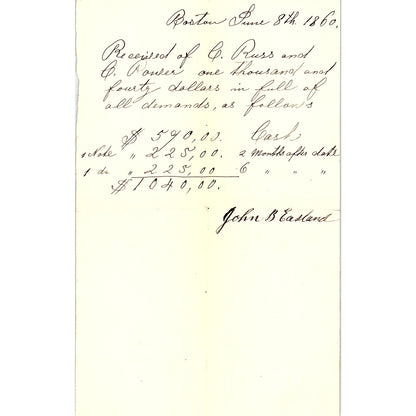 Boston June 8th 1860.
Received of C. Russ and
C. one thousand and
fourty dollars in full of
all demands, as follows
$ 590,00. Cash
1 Note " 225,00. 2 Months after date
1 do " 225,00 6 " " "
$1040,00.
John B Eastand